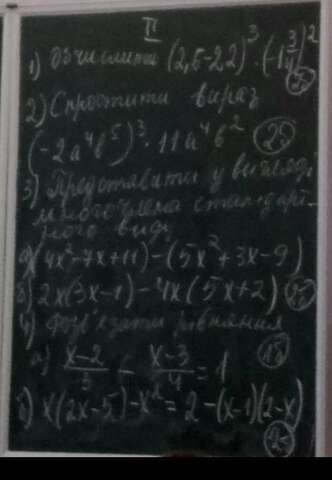 II
1) Обчислити (2,5-2,2)³ · (-1¾)²
2) Спростити вираз
(-2a⁴b⁵)³ · 11a⁴b² 2б
3) Представити у вигляді
многочлена стандарт-
ного виду
а) (4x²-7x+11)-(5x²+3x-9)
б) 2x(3x-1)-4x(5x+2)
4) Розв'язати рівняння
а) x-2/3 - x-3/4 = 1
б) x(2x-5)-x² = 2-(x-1)(2-x)